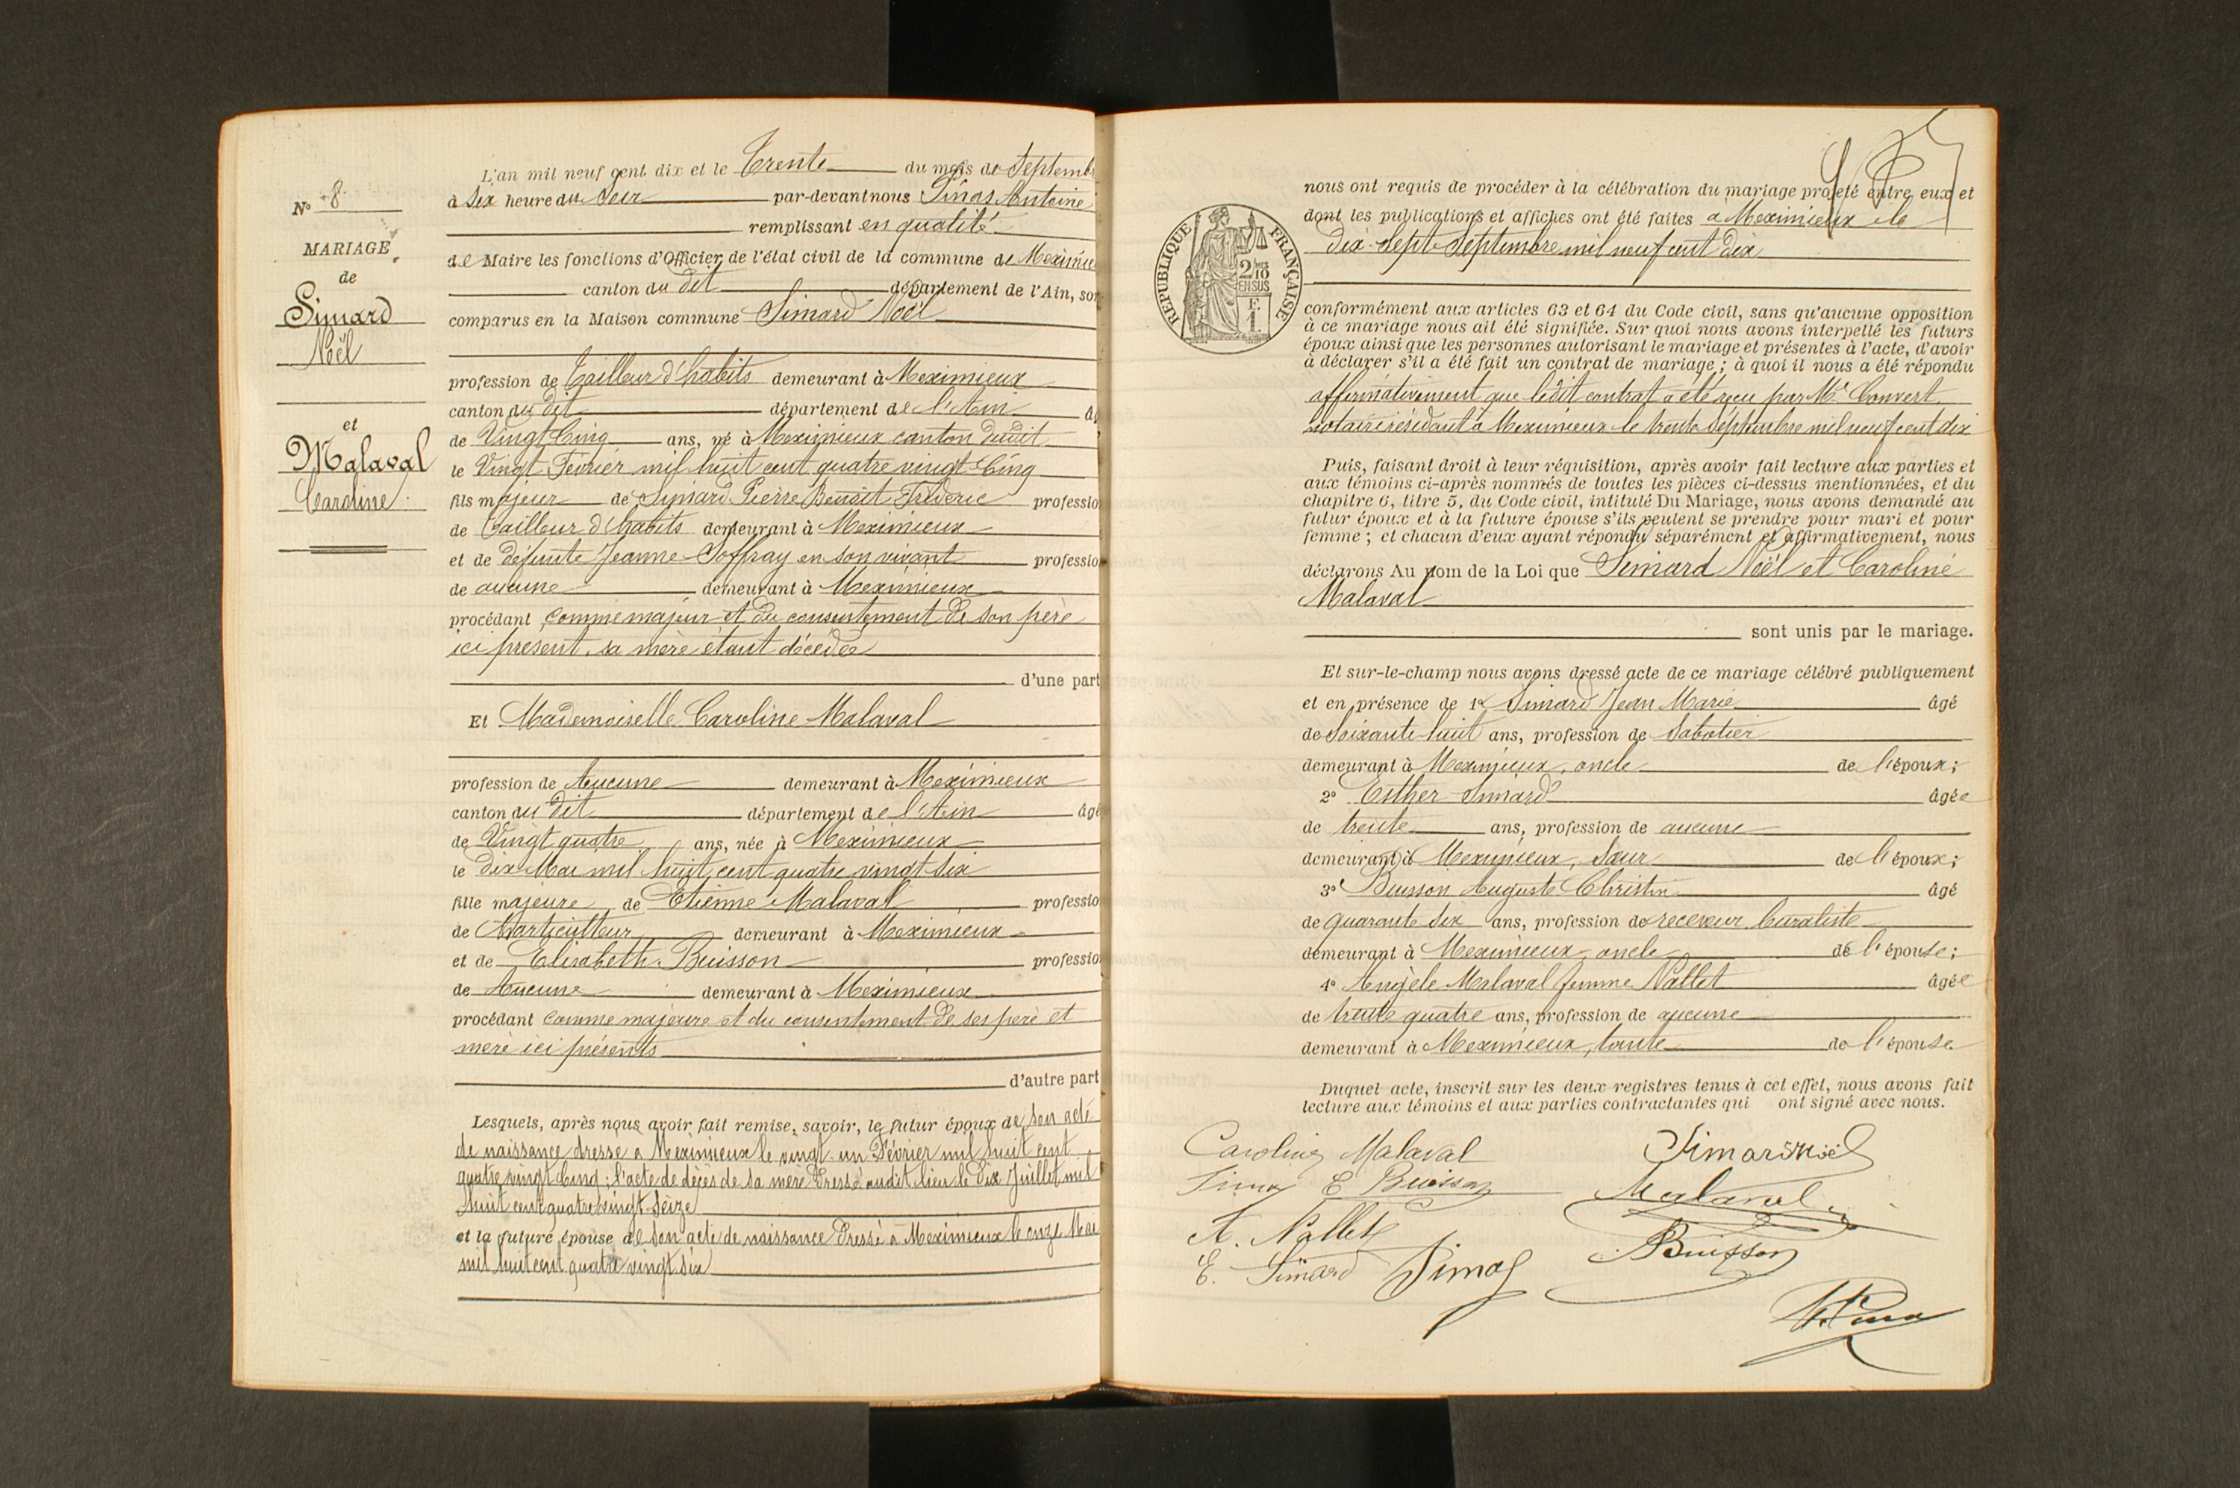 N° 8
MARIAGE
de
Simard
Noël
et
Malaval
Caroline
L'an mil neuf cent dix et le Trente du mois de Septemb
à Six heure du Soir par-devant nous Pinas Antoine
remplissant en qualité
de Maire les fonctions d'Officier de l'état civil de la commune de Meximie
canton du dit département de l'Ain, son
comparus en la Maison commune Simard Noël
profession de Tailleur d'habits demeurant à Meximieux
canton du dit département de l'Ain âg
de Vingt Cinq ans, né à Meximieux canton dudit
le Vingt Février mil huit cent quatre vingt Cinq
fils majeur de Simard Pierre Benoit Fréderic professio
de tailleur d'habits demeurant à Meximieux
et de défunte Jeanne Joffray en son vivant professio
de aucune demeurant à Meximieux
procédant comme majeur et du consentement de son père
ici présent, sa mère étant décédée
d'une part
Et Mademoiselle Caroline Malaval
profession de Aucune demeurant à Meximieux
canton du dit département de l'Ain âgé
de Vingt quatre ans, née à Meximieux
le dix Mai mil huit cent quatre vingt six
fille majeure de Etienne Malaval professio
de Horticulteur demeurant à Meximieux
et de Elisabeth Buisson professio
de Aucune demeurant à Meximieux
procédant comme majeure et du consentement de ses père et
mère ici présents
d'autre part
Lesquels, après nous avoir fait remise, savoir, le futur époux de son acte
de naissance dressé a Meximieux le vingt un Février mil huit cent
quatre vingt Cinq; l'acte de décès de sa mère Dressé audit lieu le Dix Juillet mil
huit cent quatre vingt Seize
et la future épouse de son acte de naissance Dressé à Meximieux le onze Mai
mil huit cent quatre vingt six
nous ont requis de procéder à la célébration du mariage projeté entre eux et
dont les publications et affiches ont été faites à Meximieux le
dix-sept Septembre mil neuf cent dix
RÉPUBLIQUE FRANÇAISE
2/10 EN SUS
F. 1.
conformément aux articles 63 et 64 du Code civil, sans qu'aucune opposition
à ce mariage nous ait été signifiée. Sur quoi nous avons interpellé les futurs
époux ainsi que les personnes autorisant le mariage et présentes à l'acte, d'avoir
à déclarer s'il a été fait un contrat de mariage ; à quoi il nous a été répondu
affirmativement que ledit contrat a été reçu par Me Convert
notaire résidant à Meximieux le trente Septembre mil neuf cent dix
Puis, faisant droit à leur réquisition, après avoir fait lecture aux parties et
aux témoins ci-après nommés de toutes les pièces ci-dessus mentionnées, et du
chapitre 6, titre 5, du Code civil, intitulé Du Mariage, nous avons demandé au
futur époux et à la future épouse s'ils veulent se prendre pour mari et pour
femme ; et chacun d'eux ayant répondu séparément et affirmativement, nous
déclarons Au nom de la Loi que Simard Noël et Caroline
Malaval
sont unis par le mariage.
Et sur-le-champ nous avons dressé acte de ce mariage célébré publiquement
et en présence de 1° Simard Jean Marie âgé
de Soixante huit ans, profession de Sabotier
demeurant à Meximieux, oncle de l'époux;
2° Esther Simard âgée
de trente ans, profession de aucune
demeurant à Meximieux, Sœur de l'époux;
3° Buisson Auguste Christin âgé
de quarante six ans, profession de receveur buraliste
demeurant à Meximieux oncle de l'épouse;
4° Angèle Malaval femme Nallet âgée
de trente quatre ans, profession de aucune
demeurant à Meximieux, tante de l'épouse
Duquel acte, inscrit sur les deux registres tenus à cet effet, nous avons fait
lecture aux témoins et aux parties contractantes qui ont signé avec nous.
Caroline Malaval Simard Noël
E Buisson Malaval
A. Nallet Buisson
E. Simard